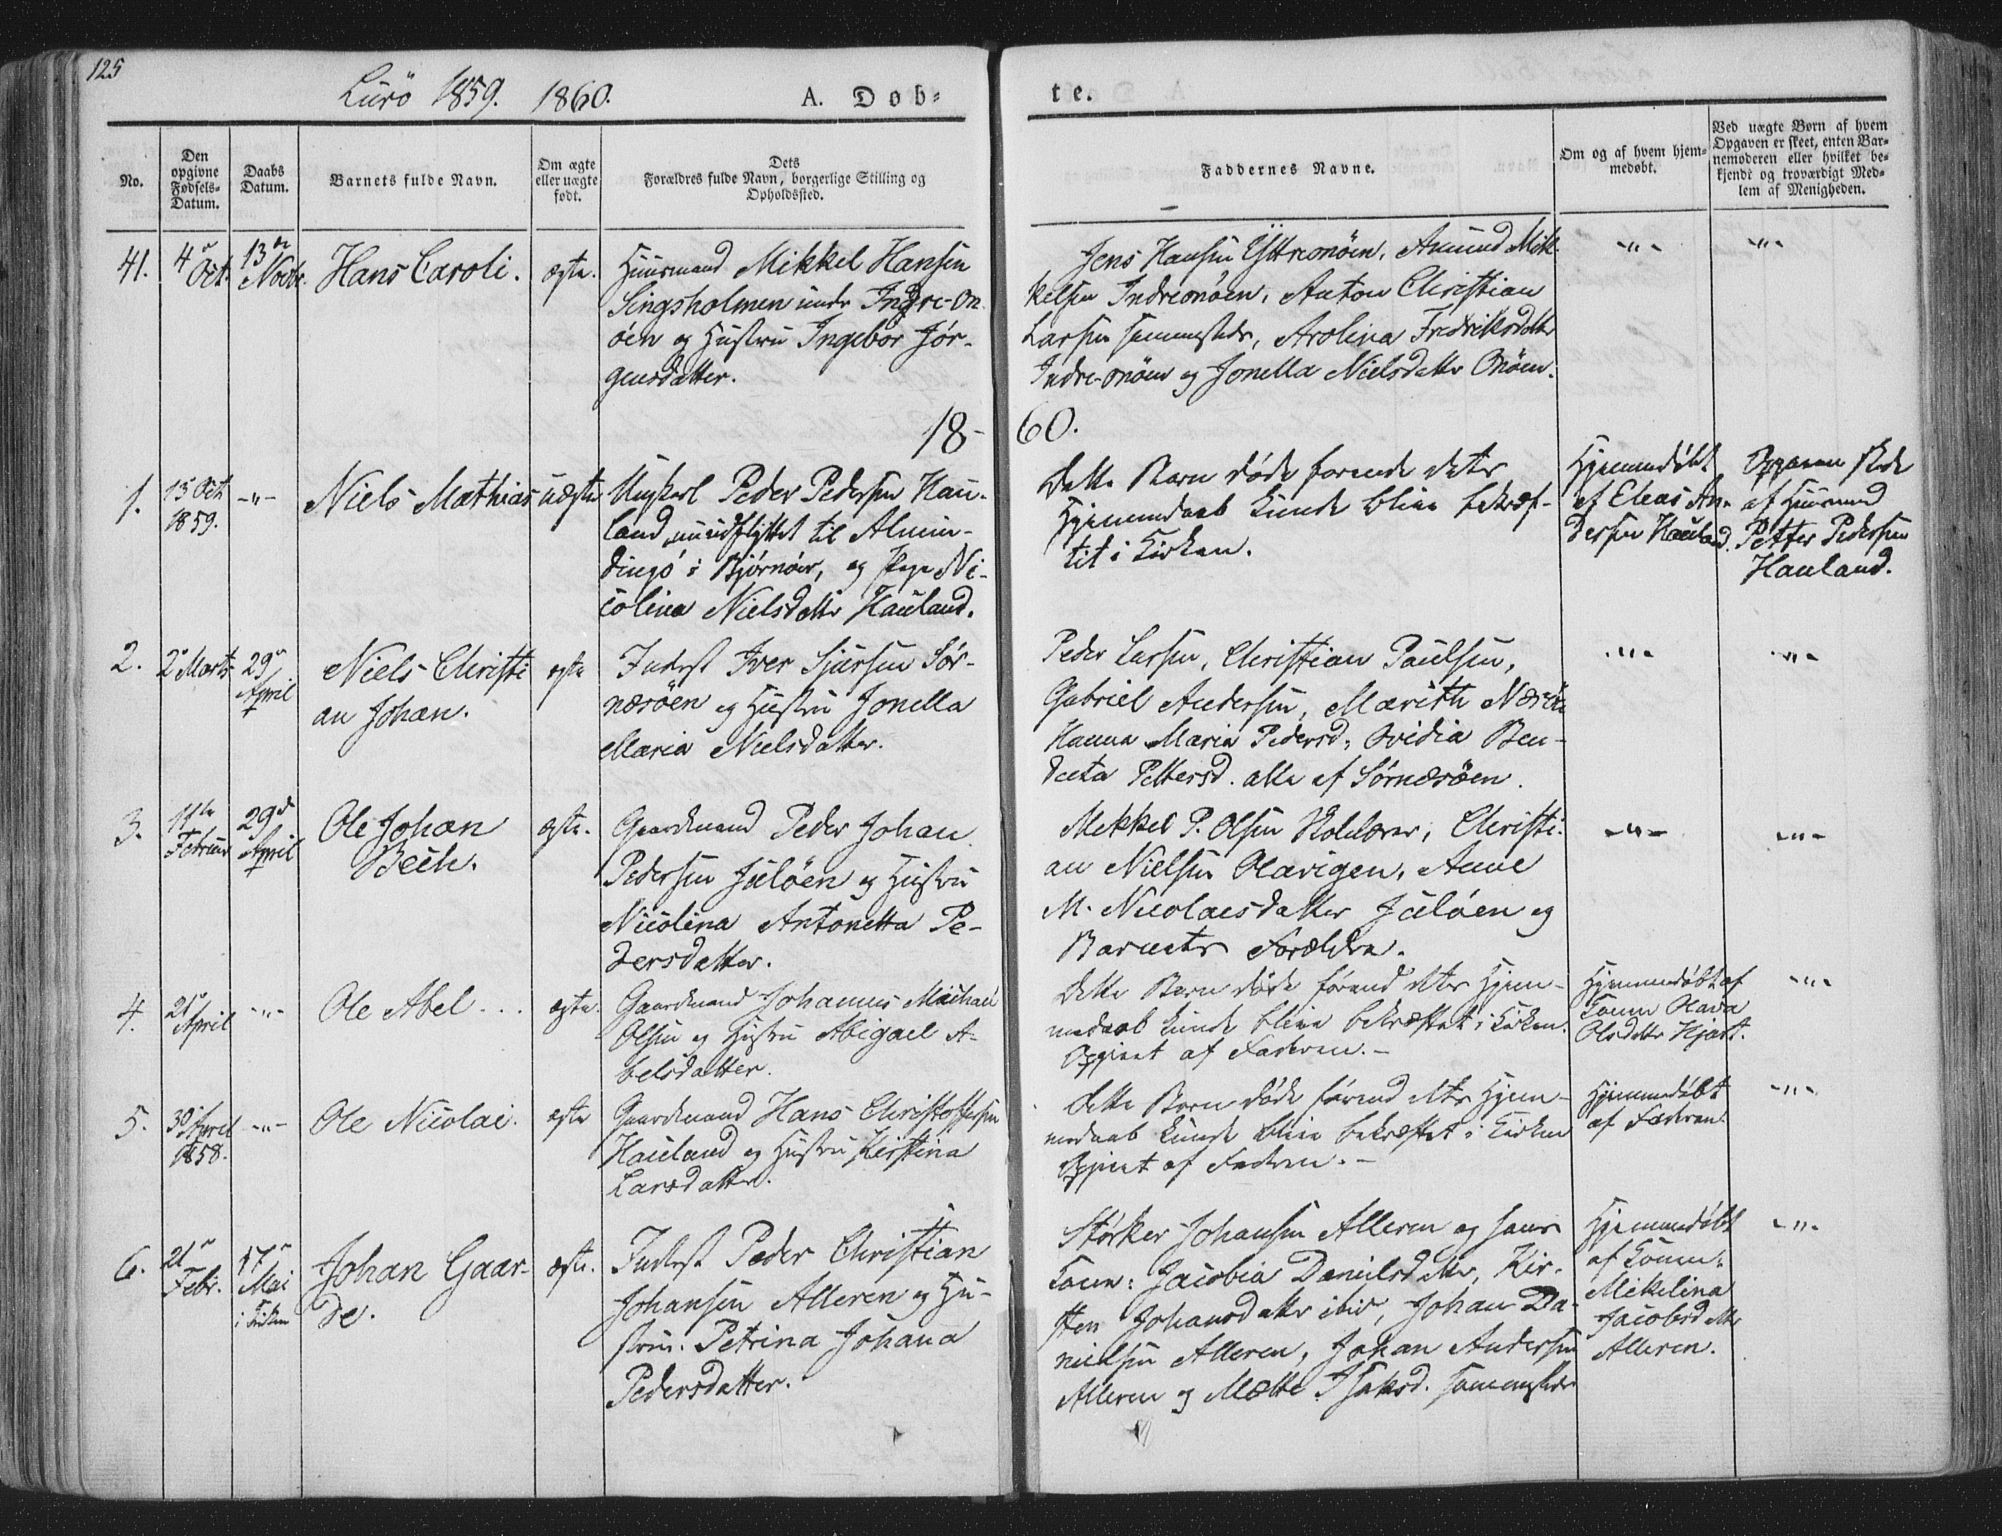 125
Lurö 1859. 1860.
A. Døb-
te.
No.
Den
opgivne
Fødsels-
Datum.
Daabs
Datum.
Barnets fulde Navn.
Om ægte
eller uægte
født.
Dets
Forældres fulde Navn, borgerlige Stilling og
Opholdssted.
Faddernes Navne.
Om og af hvem hjem-
medøbt.
Ved uægte Børn af hvem
Opgaven er skeet, enten Bar-
nemoderen eller hvilket be-
kjendt og troværdigt Med-
lem af Menigheden.
41.
4de
Oct.
13de
Novbr.
Hans Caroli.
ægte.
Huusmand Mikkel Hansen
Singsholmen under Indre-On
öen og Hustru Ingebor Jör-
gensdatter.
Jens Hansen Yttreonöen, Amund Mik-
kelsen Indreonöen, Anton Christian
Larsen sammesteds, Arolina Fredriksdatter
Indre-onöen og Jonella Nielsdatter Onöen.
-"-
-"-
18-60.
1.
15 Oct
1859.
-"-
Niels Mathias
uægte
Ungkarl Peder Pedersen Hau-
land, nu udflyttet til Almin-
dingö i Bjørnör, og Pige Ni-
colina Nielsdatter Hauland.
Dette Barn døde forend dets
Hjemmedaab kunde blive bekræf-
tet i Kirken.
Hjemmedøbt
af Elias An-
dersen Hauland.
Opgaven skede
af Huusmand
Petter Pedersen
Hauland.
2.
2 Marts
29de
April
Niels Christi
an Johan.
ægte
Inderst Iver Sjursen Sör-
næsöen og Hustru Jonella
Maria Nielsdatter.
Peder Larsen, Christian Paulsen,
Gabriel Andersen, Marith Næsöen
Hanna Maria Pedersd, Ovidia Ben-
data Pettersd. alle af Sörnæsöen.
-"-
-"-
3.
11te
Februar
29de
April
Ole Johan
Bech.
ægte.
Gaardmand Peder Johan
Pedersen Juløen og Hustru
Nicolina Antonetta Pe-
dersdatter.
Mekkel P. Olsen Skolelærer, Christi-
an Nielsen Olavigen, Anne
M. Nicolaisdatter Juløen og
Barnets Forældre.
-"-
-"-
4.
21de
April
-"-
Ole Abel
ægte.
Gaardmand Johannes Michael
Olsen og Hustru Abigael A-
belsdatter.
Dette Barn døde førend dets Hjem-
medaab kunde blive bekræftet i Kirken.
Opgivet af Faderen.-
Hjemmedøbt af
Konen Olava
Olsdatter Hjart.
-"-
5.
30 April
1858.
-"-
Ole Nicolai.
ægte
Gaardmand Hans Christoffersen
Hauland og Hustru Kirstina
Larsdatter.
Dette Barn døde førend dets Hjem-
medaab kunde blive bekræftet i Kirken
Opgivet af Faderen.-
Hjemmedøbt
af Faderen.
-"-
6.
21de
Febr.
17de
Mai
i Kirken
Johan Gaar-
de.
ægte.
Inderst Peder Christian
Johansen Alleren og Hu-
stru. Petrina Johana
Pedersdatter.
Størker Johansen Alleren og hans
Kone: Jacobia Danielsdatter, Kir-
sten Johansdatter ibid, Johan Da-
nielsen Alleren, Johan Andersen
Alleren og Mætte Isaksd. sammesteds
Hjemmedøbt
af Konen:
Mikelina
Jacobsdatter
Alleren.
-"-